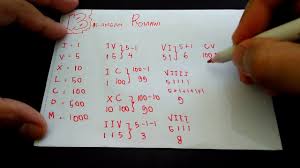 13 BILANGAN ROMAWI
I = 1
V = 5
X = 10
L = 50
C = 100
D = 500
M = 1000
IV } 5-1
1 5 } 4
I C } 100-1
1 100 } 99
XC } 100-10
10 100 } 90
IIV } 5-1-1
1 1 5 } 3
VI } 5+1
5 1 } 6
VIII
5 1 1 1
5+1+1+1
VIII
5 1 1 1
8
CV
100